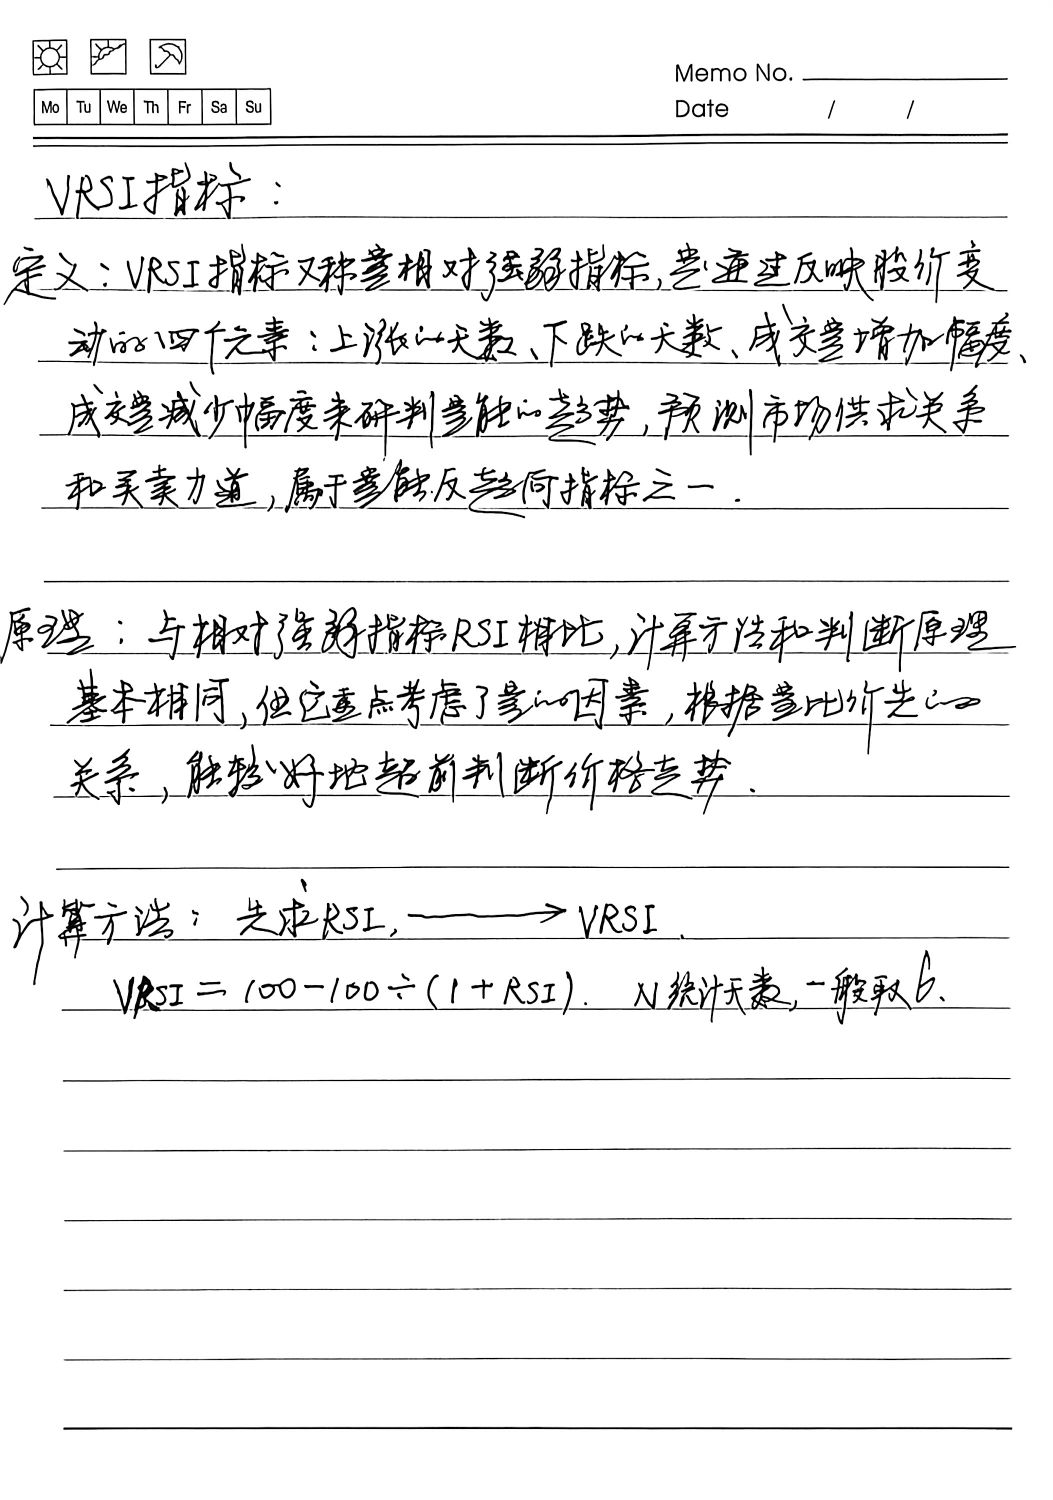 Memo No.
Mo Tu We Th Fr Sa Su
Date / /
VRSI指标：
定义：VRSI指标又称量相对强弱指标，是通过反映股价变
动的四个元素：上涨的天数、下跌的天数、成交量增加幅度、
成交量减少幅度来研判量能的趋势，预测市场供求关系
和买卖力道，属于量能反趋向指标之一．
原理：与相对强弱指标RSI相比，计算方法和判断原理
基本相同，但它重点考虑了量的因素，根据量比价先的
关系，能较好地超前判断价格走势．
计算方法：先求RSI，⟶VRSI．
VRSI＝100－100÷(1＋RSI)． N统计天数，一般取6、